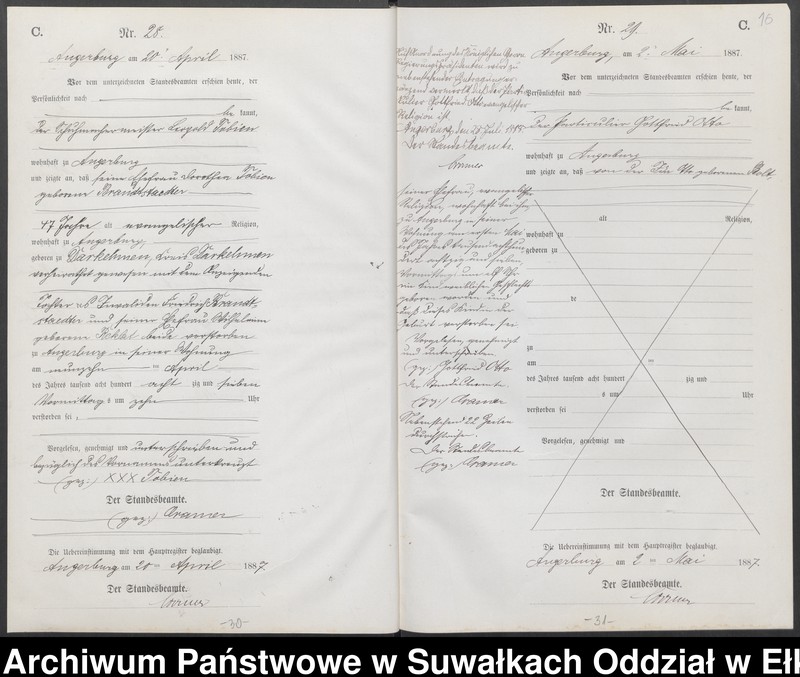 C.
Nr. 28.
Angerburg am 20ten April 1887.
Vor dem unterzeichneten Standesbeamten erschien heute, der
Persönlichkeit nach
be kannt,
der Schuhmachermeister Leopold Tobien
wohnhaft zu Angerburg
und zeigte an, daß seine Ehefrau Dorothea Tobien
geborene Brandtstaedter
47 Jahre alt evangelischer Religion,
wohnhaft zu Angerburg,
geboren zu Darkehmen, Kreis Darkehmen
verheirathet gewesen mit dem Anzeigenden
Tochter des Friedrich Brandt-
staedter und seiner Ehefrau Wilhelmine
geborene beide verstorben
zu Angerburg in seiner Wohnung
am neunzehn ten April
des Jahres tausend acht hundert acht zig und sieben
Vormittags um zehn Uhr
verstorben sei,
Vorgelesen, genehmigt und unterschrieben und
bezüglich des Vornamens unterkreuzt
(gez:) XXX Tobien
Der Standesbeamte.
(gez:) Cramer
Die Uebereinstimmung mit dem Hauptregister beglaubigt.
Angerburg am 20ten April 1887.
Der Standesbeamte.
Cramer
-30-
C. 16
Nr. 29.
Angerburg, am 2ten Mai 1887.
Vor dem unterzeichneten Standesbeamten erschien heute, der
Persönlichkeit nach
be kannt,
der Particulier Gottfried Otto
wohnhaft zu Angerburg
und zeigte an, daß von der Otto geborenen
alt Religion,
wohnhaft zu
geboren zu
de
zu
am ten
des Jahres tausend acht hundert zig und
s um Uhr
verstorben sei
Vorgelesen, genehmigt und
Der Standesbeamte.
Die Uebereinstimmung mit dem Hauptregister beglaubigt.
Angerburg am 2ten Mai 1887.
Der Standesbeamte.
Cramer
-31-
Religion ist.
Der Standesbeamte.
Cramer
seiner Ehefrau, evangelischer
Religion, wohnhaft bei ihm
zu Angerburg in seiner
Wohnung am ersten Mai
des Jahres tausend achthun-
dert achtzig und sieben
Vormittags um elf Uhr
ein Kind weiblichen Geschlechts
geboren worden und
daß dieses Kind in der
Geburt verstorben sei
Vorgelesen, genehmigt
und unterschrieben
(gez:) Gottfried Otto
Der Standesbeamte
(gez:) Cramer
Nebenstehend 22 Zeilen
Der Standesbeamte
(gez:) Cramer
Archiwum Państwowe w Suwałkach Oddział w Ełk